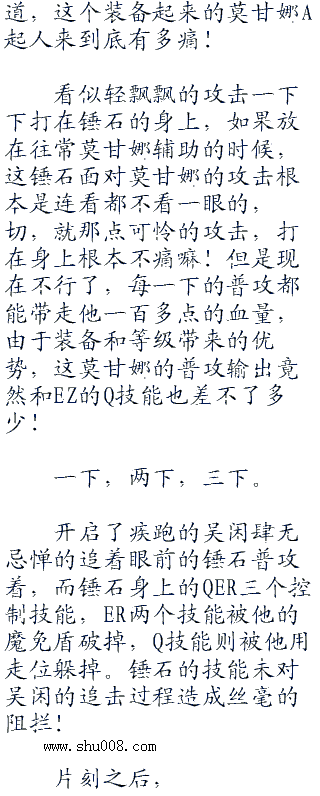 道，这个装备起来的莫甘娜A
起人来到底有多痛！
看似轻飘飘的攻击一下
下打在锤石的身上，如果放
在往常莫甘娜辅助的时候，
这锤石面对莫甘娜的攻击根
本是连看都不看一眼的，
切，就那点可怜的攻击，打
在身上根本不痛嘛！但是现
在不行了，每一下的普攻都
能带走他一百多点的血量，
由于装备和等级带来的优
势，这莫甘娜的普攻输出竟
然和EZ的Q技能也差不了多
少！
一下，两下，三下。
开启了疾跑的吴闲肆无
忌惮的追着眼前的锤石普攻
着，而锤石身上的QER三个控
制技能，ER两个技能被他的
魔免盾破掉，Q技能则被他用
走位躲掉。锤石的技能未对
吴闲的追击过程造成丝毫的
阻拦！
www.shu008.com
片刻之后，